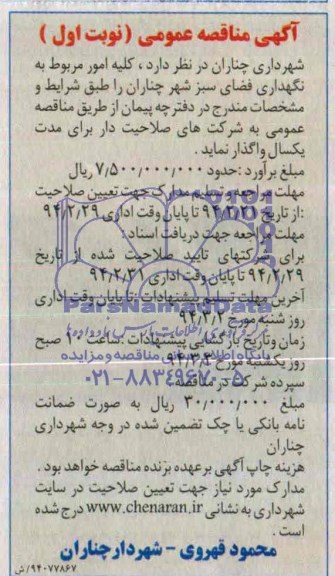 آگهی مناقصه عمومی ( نوبت اول )
شهرداری چناران در نظر دارد ، کلیه امور مربوط به
نگهداری فضای سبز شهر چناران را طبق شرایط و
مشخصات مندرج در دفترچه پیمان از طریق مناقصه
عمومی به شرکت های صلاحیت دار برای مدت
یکسال واگذار نماید .
مبلغ برآورد :حدود ۷٫۵۰۰٫۰۰۰٫۰۰۰ ریال
مهلت مراجعه و تسلیم مدارک جهت تعیین صلاحیت
:از تاریخ ۹۴٫۲٫۲۱ تا پایان وقت اداری ۹۴٫۲٫۲۹
مهلت مراجعه جهت دریافت اسناد:
برای شرکتهای تایید صلاحیت شده از تاریخ
۹۴٫۲٫۲۹ تا پایان وقت اداری ۹۴٫۲٫۳۱
آخرین مهلت تسلیم پیشنهادات :تا پایان وقت اداری
روز شنبه مورخ ۹۴٫۳٫۲
ParsNamadData
زمان وتاریخ بازگشایی پیشنهادات :ساعت ۱۰ صبح
روز یکشنبه مورخ ۹۴٫۳٫۳
پایگاه اطلاع رسانی مناقصه و مزایده
سپرده شرکت در مناقصه:
۰۲۱-۸۸۳۴۹۶۷۰-۵
مبلغ ۳۰۰٫۰۰۰٫۰۰۰ ریال به صورت ضمانت
نامه بانکی یا چک تضمین شده در وجه شهرداری
چناران
هزینه چاپ آگهی برعهده برنده مناقصه خواهد بود .
مدارک مورد نیاز جهت تعیین صلاحیت در سایت
شهرداری به نشانی www.chenaran.ir درج شده
است .
محمود قهروی - شهردار چناران
۹۴۰۷۷۸۶۷/ ش